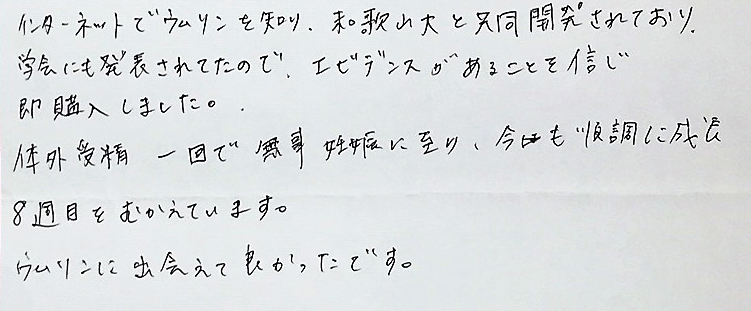 インターネットでウムリンを知り、和歌山大と共同開発されており、
学会にも発表されてたので、エビデンスがあることを信じ
即購入しました。
体外受精 一回で 無事 妊娠に至り、今も順調に成長
8週目をむかえています。
ウムリンに出会えて良かったです。